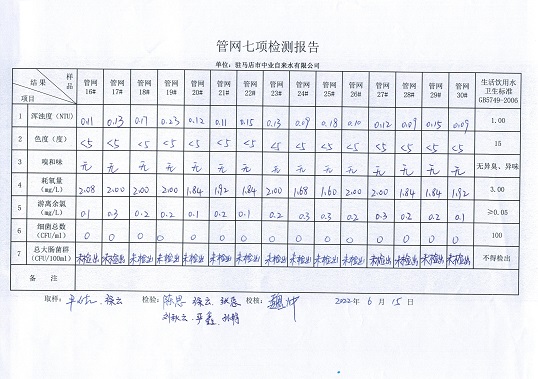 管网七项检测报告
单位：驻马店市中业自来水有限公司
结果 样品 项目 管网16# 管网17# 管网18# 管网19# 管网20# 管网21# 管网22# 管网23# 管网24# 管网25# 管网26# 管网27# 管网28# 管网29# 管网30# 生活饮用水卫生标准GB5749-2006
1 浑浊度（NTU） 0.11 0.13 0.17 0.23 0.12 0.11 0.15 0.13 0.09 0.18 0.10 0.12 0.09 0.15 0.09 1.00
2 色度（度） <5 <5 <5 <5 <5 <5 <5 <5 <5 <5 <5 <5 <5 <5 <5 15
3 嗅和味 无 无 无 无 无 无 无 无 无 无 无 无 无 无 无 无异臭、异味
4 耗氧量（mg/L） 2.08 2.00 2.00 2.00 1.84 1.92 1.84 2.00 1.68 1.60 2.00 2.00 1.84 1.84 1.92 3.00
5 游离余氯（mg/L） 0.1 0.3 0.2 0.2 0.1 0.2 0.1 0.2 0.3 0.3 0.2 0.3 0.2 0.2 0.1 ≥0.05
6 细菌总数（CFU/ml） 0 0 0 0 0 0 0 0 0 0 0 0 0 0 0 100
7 总大肠菌群（CFU/100ml） 未检出 未检出 未检出 未检出 未检出 未检出 未检出 未检出 未检出 未检出 未检出 未检出 未检出 未检出 未检出 不得检出
备 注
取样： 徐云 检验： 徐云 校核： 2022 年 6 月 15 日